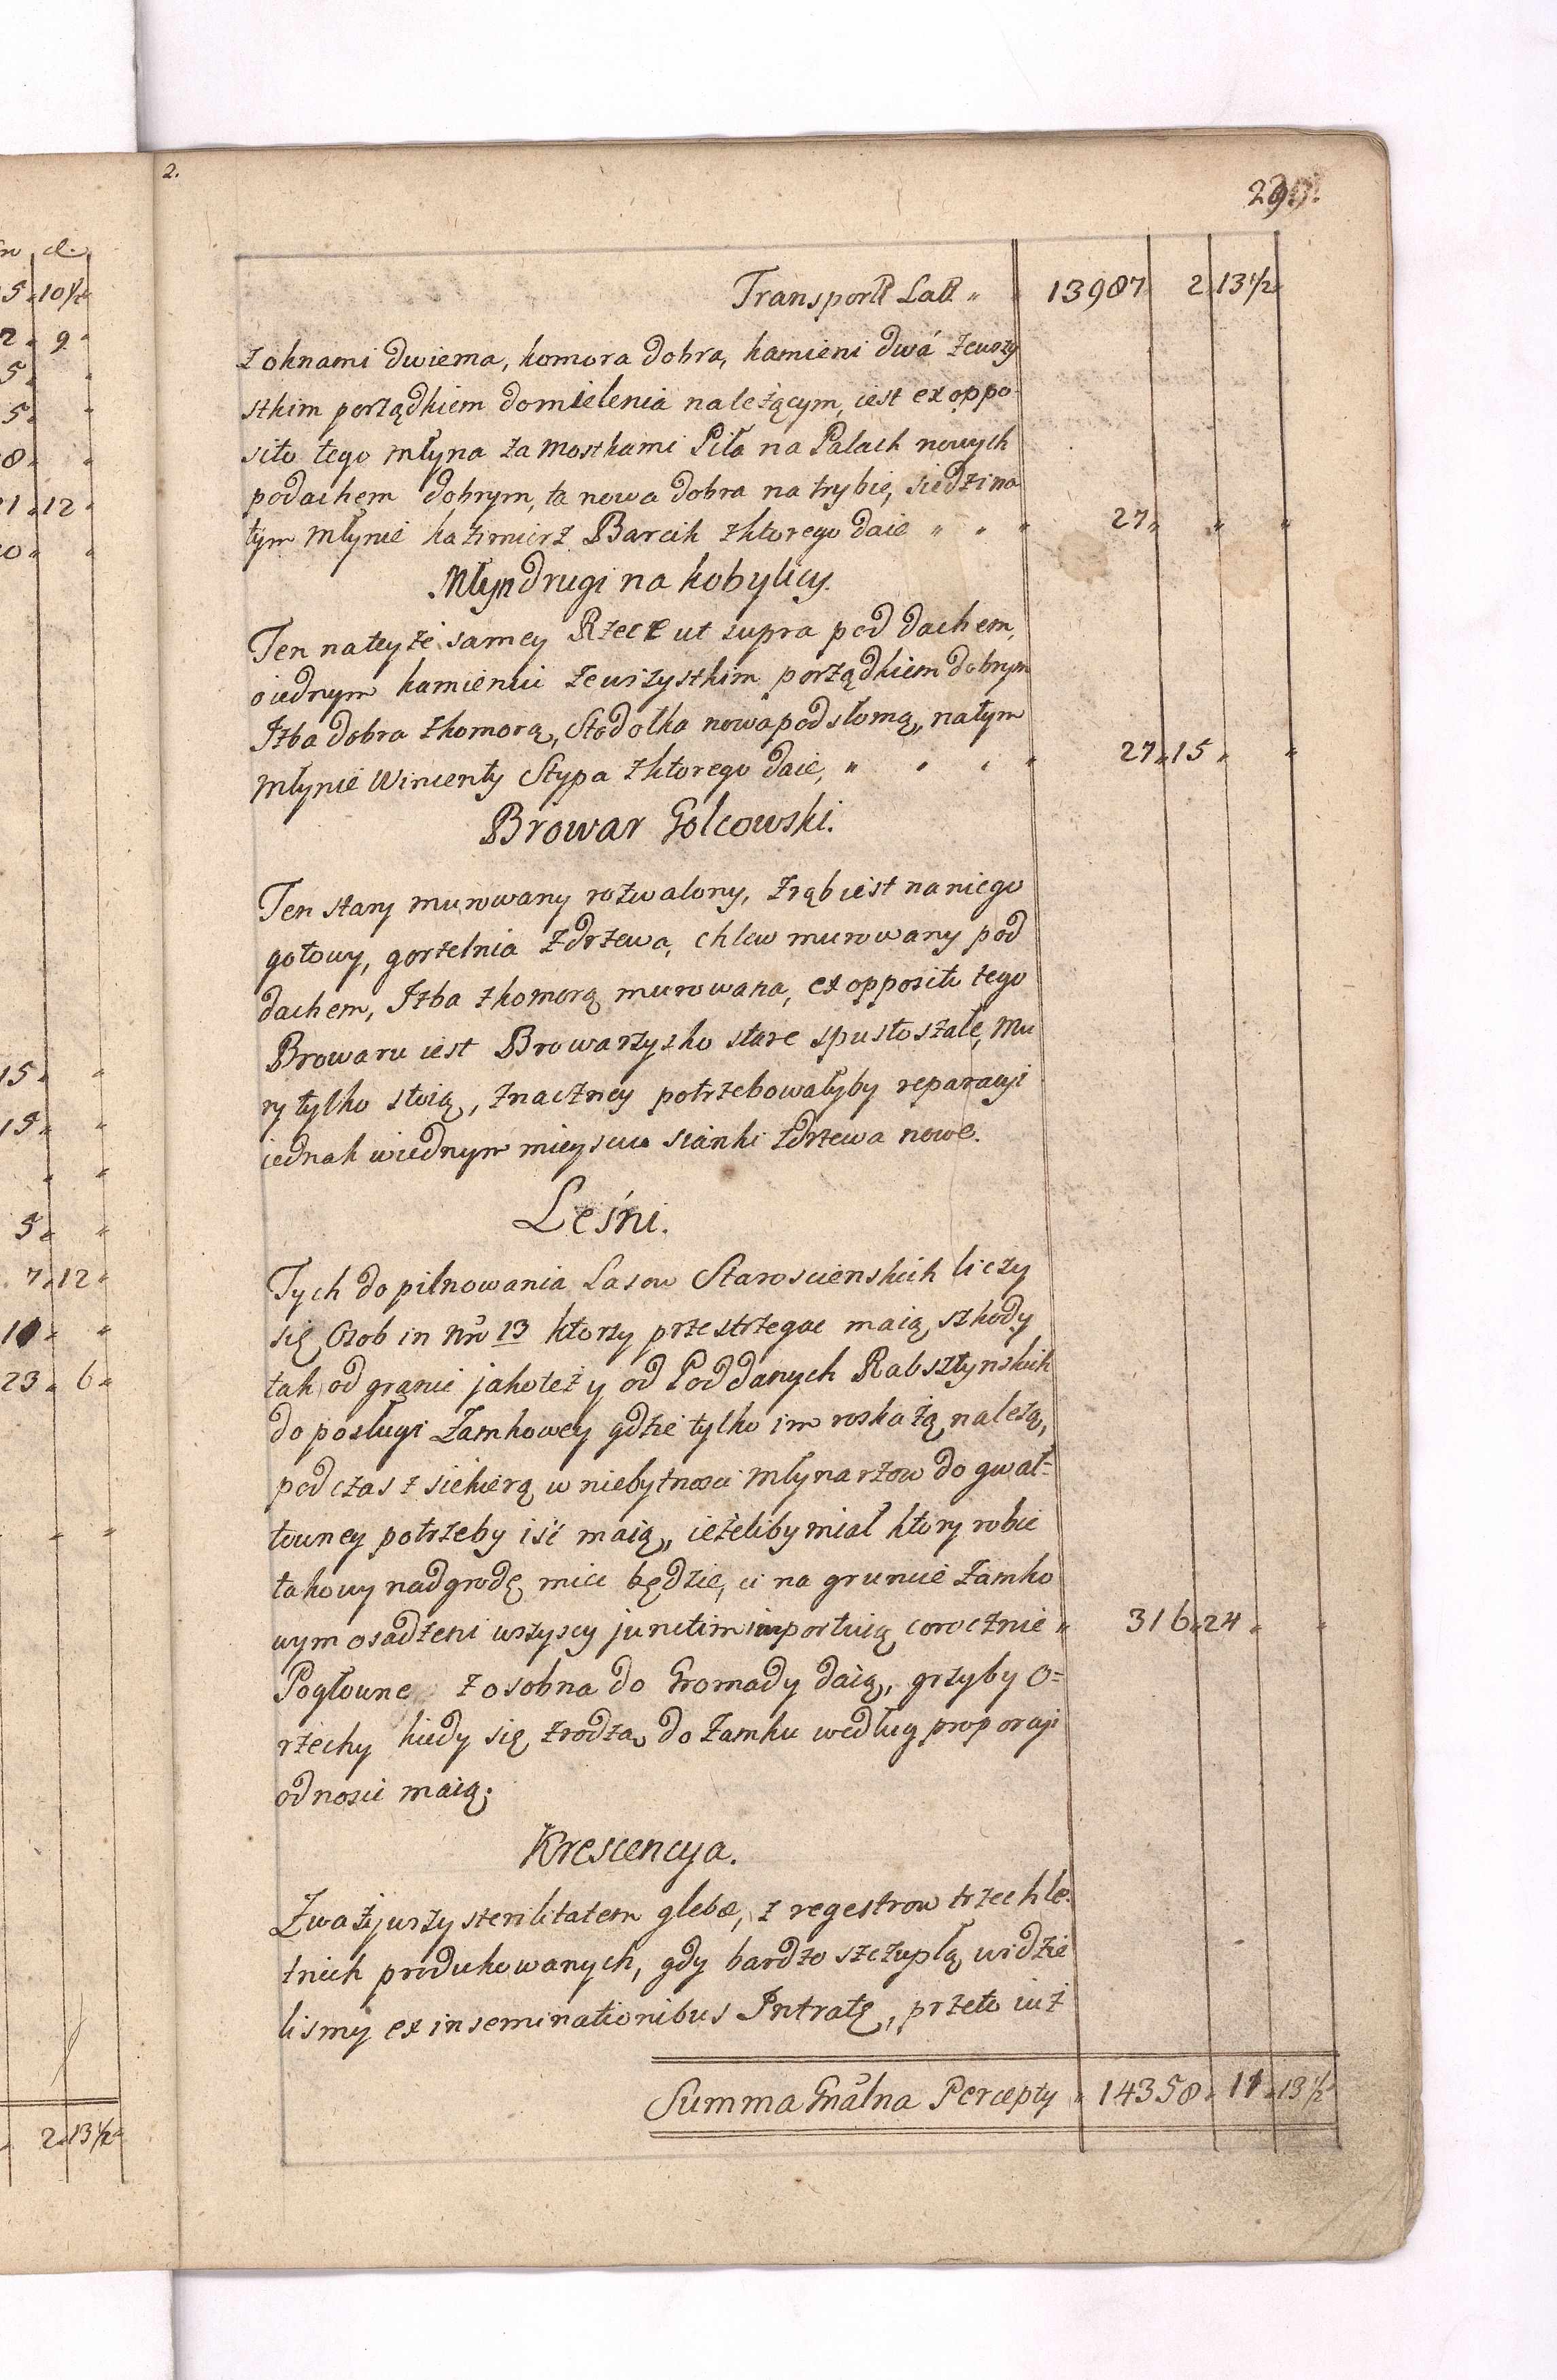 2.
n d.
5 " 10 1/2 "
2 " 9 "
5 " "
5 " "
8 " "
21 " 12 "
0 " "
15 " "
15 " "
" "
5 " "
7 " 12 "
10 " "
23 " 6 "
" "
2 " 13 1/2 "
Transport Lat. " 13987 2 13 1/2 "
z oknami dwiema, komora dobra, kamieni dwá zewszy
stkim porządkiem domielenia należącym, iest ex oppo-
sito tego młyna za mostkami Piła na Palach nowych
podachem dobrym, ta nowa dobra na trybie, siedzi na
tym młynie kazimierz Barcik zktorego daie " " " 27 " " "
Młyn drugi na kobylicy.
Ten nateyże samey Rzece ut supra pod dachem,
o iednym kamieniu zewszystkim porządkiem dobrym
Izba dobra zkomorą, Stodołka nowa pod słomą, natym
młynie Wincenty Stypa zktorego daie, " " " " 27 " 15 " "
Browar Golcowski.
Ten stary murowany rozwalony, zrąb iest na niego
gotowy, gorzelnia zdrzewa, chlew murowany pod
dachem, Izba zkomorą murowana, ex opposito tego
Browaru iest Browarzysko stare spustoszałe, Mu
ry tylko stoią, znaczney potrzebowałyby reparacyi
iednak wiednym mieyscu scianki zdrzewa nowe.
Leśni.
Tych do pilnowania Lasow Staroscienskich liczy
się Osob in Nro 13 ktorzy przestrzegac maią szkody
tak od granic jakoteż y od Poddanych Rabsztynskich
do posługi Zamkowey gdzie tylko im roskażą należą,
podczas z siekierą w niebytnosci Młynarzow do gwał-
towney potrzeby iśc maią, ieżeliby miał ktory robic
takowy nadgrodę miec będzie, ci na gruncie Zamko
wym osadzeni wszyscy junctim importuią corocznie " 316 " 24 " "
Pogłowne zosobna do Gromady daią, grzyby O-
rzechy kiedy się zrodzą do Zamku według proporcyi
odnosic maią.
Krescencya.
Zważywszy sterilitatem glebæ, z regestrow trzechle-
tnich produkowanych, gdy bardzo szczupłą widzie
lismy ex inseminationibus Intratę, przeto iuż
Summa Gnãlna Percepty " 14358 " 11 " 13 1/2 "